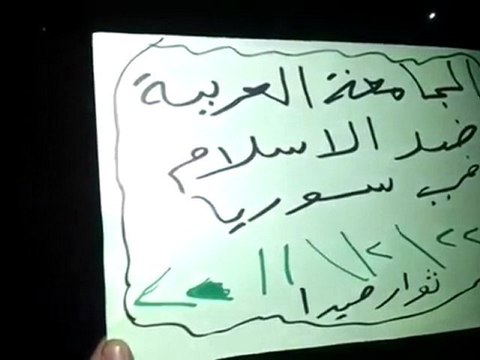 الجامعة العربية
ضد الاسلام
في سوريا
٢٢\١٢\١١
ثوار صيدا